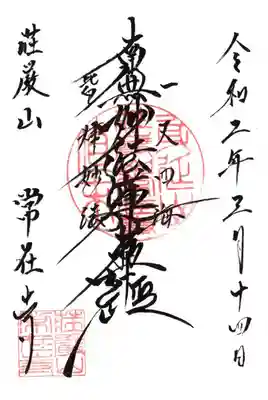 令和二年三月十四日
一天四海
南無妙法蓮華経
皆帰妙法
荘厳山
常在寺